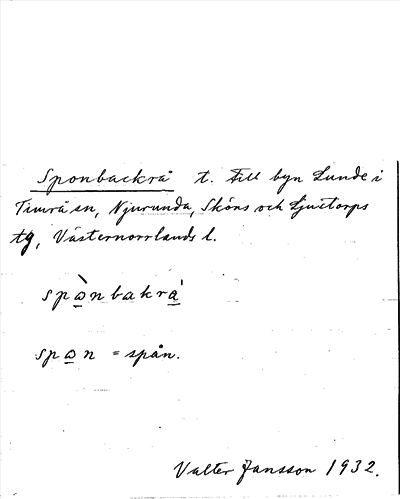 Sponbackrå t. till byn Lunde i
Timrå sn, Njurunda, Sköns och Ljustorps
tg, Västernorrlands l.
spὼ̲nbakra̲ˈ
spω̲n = spån.
Valter Jansson 1932.